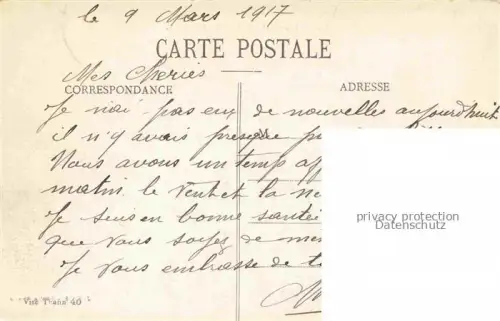 le 9 Mars 1917
CARTE POSTALE
Mes Cheries
CORRESPONDANCE
ADRESSE
Je n'ai pas eux de nouvelles aujourd'huit
il n'y avais presque
Nous avons un temps
matin le Vent et la
Je suis en bonne santée
que vous soyez de
Je Vous embrasse de
privacy protection
Datenschutz
Visé Paris 40